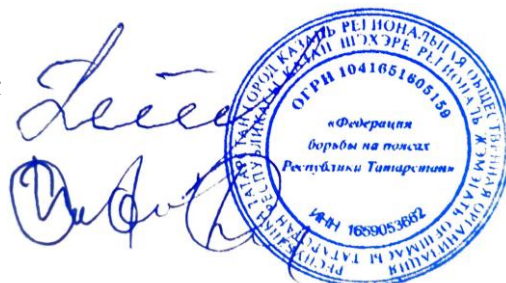 РЕСПУБЛИКА ТАТАРСТАН ГОРОД КАЗАНЬ РЕГИОНАЛЬНАЯ ОБЩЕСТВЕННАЯ ОРГАНИЗАЦИЯ
ТАТАРСТАН РЕСПУБЛИКАСЫ КАЗАН ШӘҺӘРЕ РЕГИОНАЛЬ ҖӘМӘГАТЬ ОЕШМАСЫ
ОГРН 1041651605159
«Федерация
борьбы на поясах
Республики Татарстан»
ИНН 1659053662